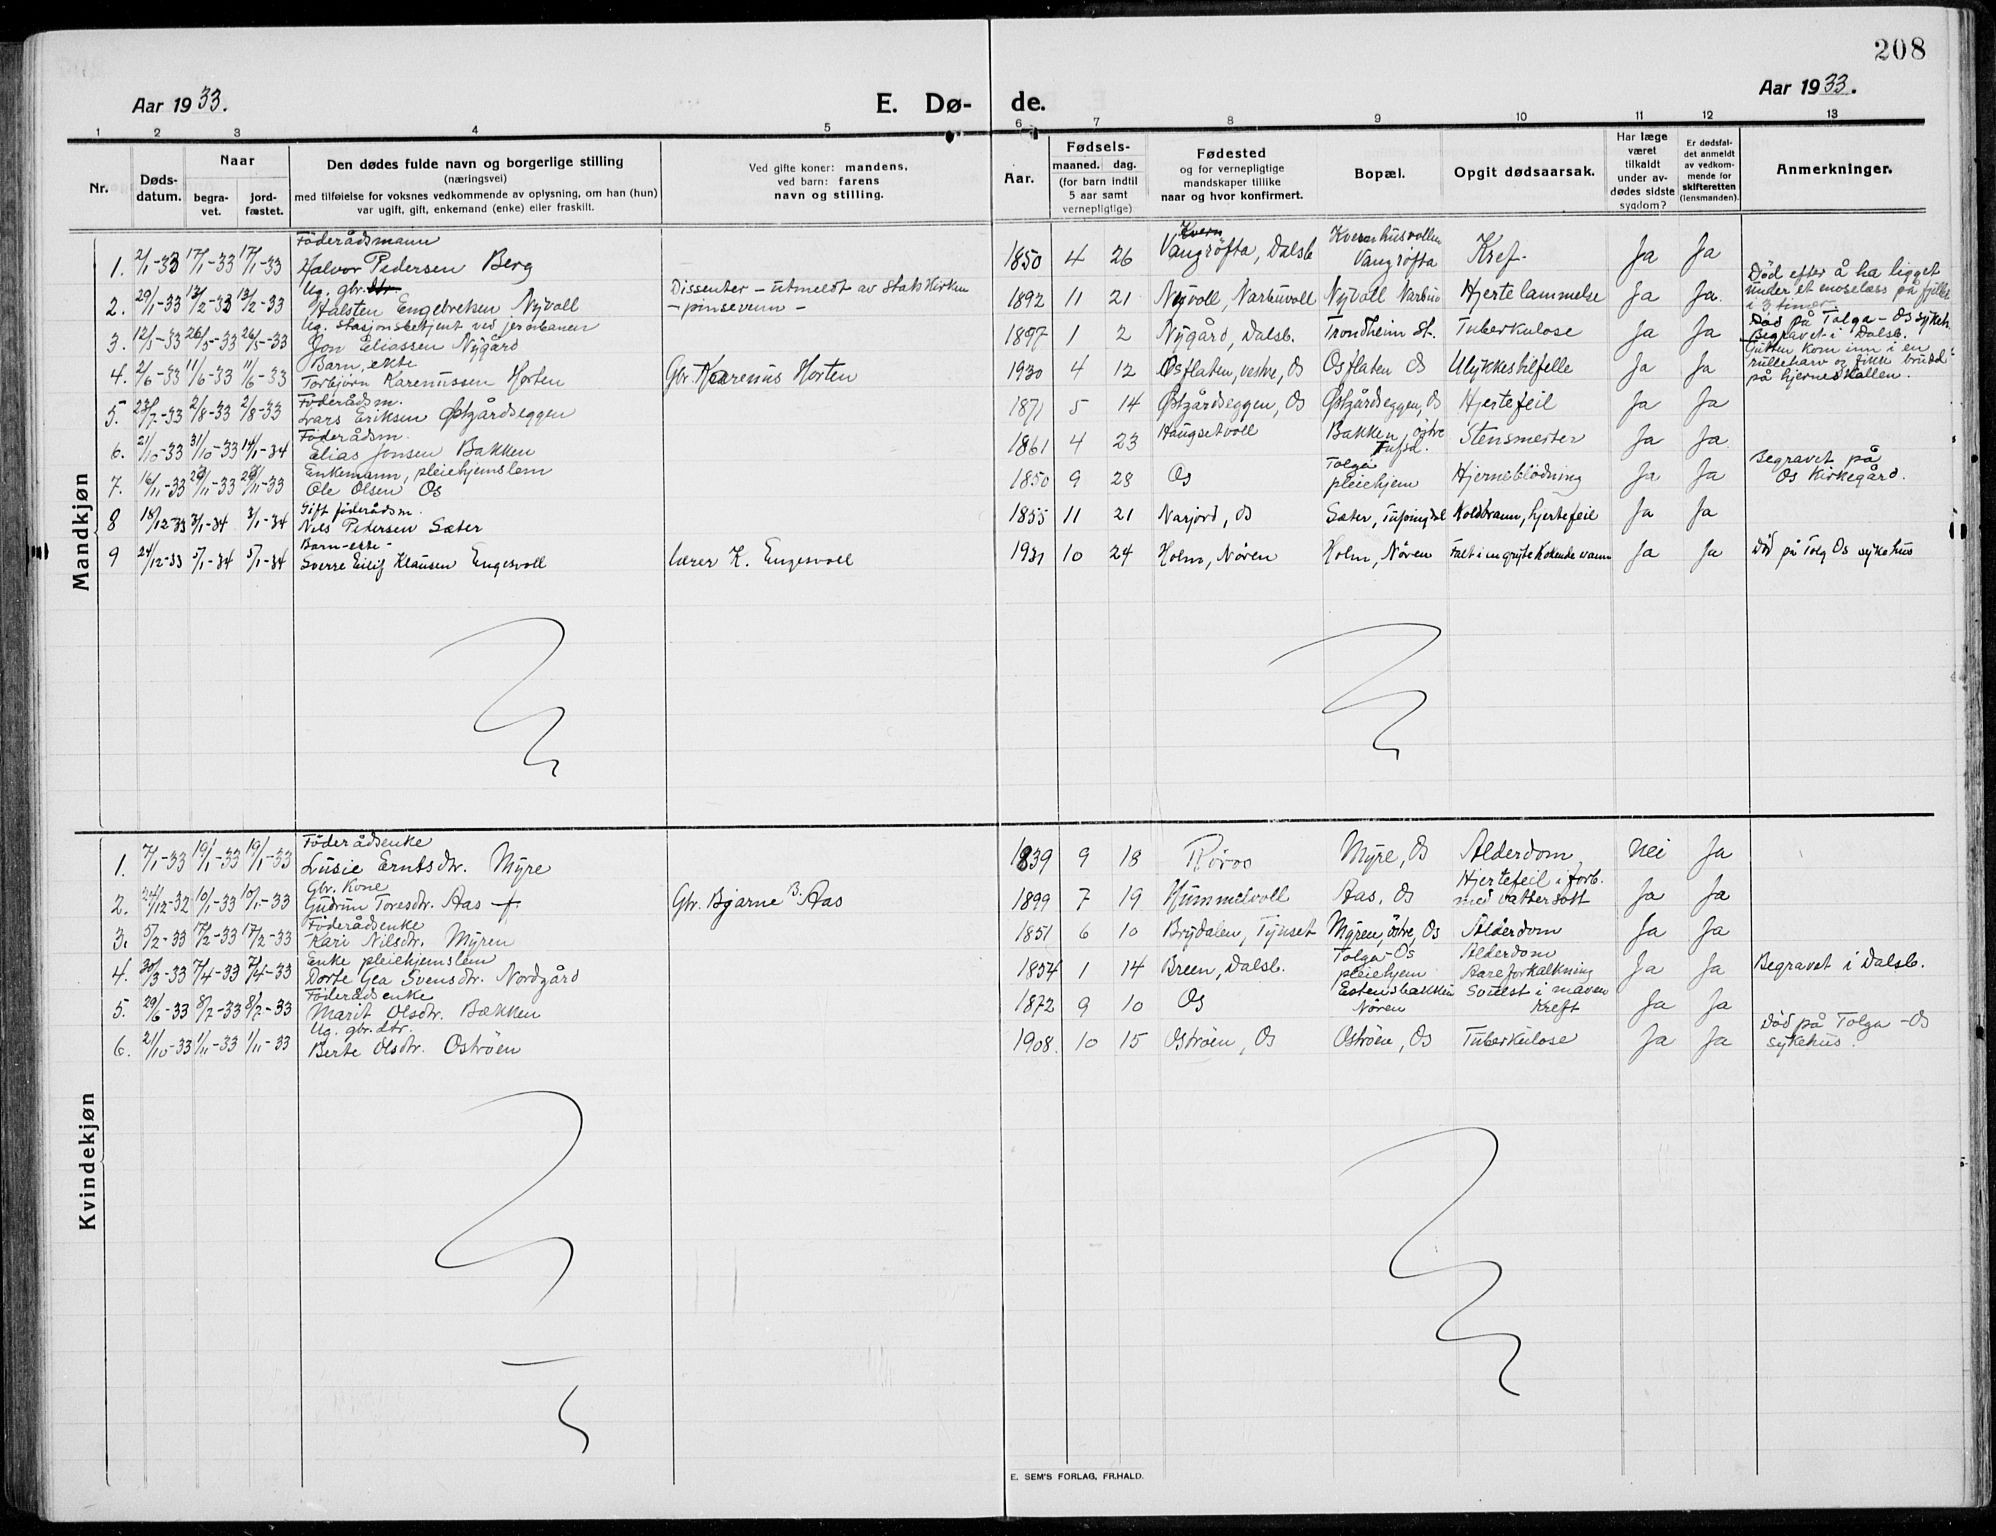 208
Aar 1933.
E. Dø-
de.
Aar 1933.
1 2 3 4 5 6 7 8 9 10 11 12 13
Nr.
Døds-
datum.
Naar
begra-
vet.
jord-
fæstet.
Den dødes fulde navn og borgerlige stilling
(næringsvei)
med tilføielse for voksnes vedkommende av oplysning, om han (hun)
var ugift, gift, enkemand (enke) eller fraskilt.
Ved gifte koner: mandens,
ved barn: farens
navn og stilling.
Aar.
Fødsels-
maaned. dag.
(for barn indtil
5 aar samt
vernepligtige)
Fødested
og for vernepligtige
mandskaper tillike
naar og hvor konfirmert.
Bopæl.
Opgit dødsaarsak.
Har læge
været
tilkaldt
under av-
dødes sidste
sygdom?
Er dødsfal-
det anmeldt
av vedkom-
mende for
skifteretten
(lensmanden).
Anmerkninger.
Mandkjøn
Föderådsmann
1. 2/1-33 17/1-33 17/1-33 Halvor Pedersen Berg 1850 4 26 Kvern Vangrøfta, Dalsb. Kvernhusvollen Vangrøfta Kref. Ja Ja
Ug. gbr. dtr.
2. 29/1-33 13/2-33 13/2-33 Halsten Engebretsen Nyvoll Dissenter - utmeldt av Statskirken - pinsevenn - 1892 11 21 Nyvoll, Narbuvoll Nyvoll Narbuv Hjertelammelse Ja Ja Död efter å ha ligget under et moselass på fjellet i 3 timer
Ug. stasjonsbetjent ved jernbanen
3. 12/5-33 26/5-33 26/5-33 Jon Eliassen Nygård 1897 1 2 Nygård, Dalsb. Trondheim st. Tuberkulose Ja Ja Död på Tolga - Os sykeh. Begravet i Dalsb.
Barn, ekte
4. 2/6-33 11/6-33 11/6-33 Torbjörn Karenussen Horten Gbr. Karenus Horten 1930 4 12 Osflaten, vestre, Os Osflaten Os Ulykkestilfelle Ja Ja Gutten kom inn i en rulleharv og fikk brudd på hjerneskallen.
Föderådsm.
5. 23/7-33 2/8-33 2/8-33 Lars Eriksen Østgårdseggen 1871 5 14 Østgårdseggen, Os Østgårdseggen, Os Hjertefeil Ja Ja
Föderådsm.
6. 21/10-33 31/10-33 14/1-34 Elias Jonsen Bakken 1861 4 23 Haugsetvoll Bakken, östre Tufsd. Stensmerter Ja Ja
Enkemann, pleiehjemslem
7. 16/11-33 29/11-33 29/11-33 Ole Olsen Os 1850 9 28 Os Tolga pleiehjem Hjerneblödning Ja Ja Begravet på Os Kirkegård.
Gift föderådsm.
8 18/12-33 3/1-34 3/1-34 Nils Pedersen Sæter 1855 11 21 Narjord, Os Sæter, Tufsingdal Koldbrann, hjertefeil Ja Ja
Barn-ekte-
9 24/12-33 5/1-34 5/1-34 Sverre Eilif Klausen Engesvoll lærer K. Engesvoll 1931 10 24 Holm, Nøren Holm, Nøren Falt i en gryte kokende vann Ja Ja Død på Tolg Os sykehus
Kvindekjøn
Föderådsenke
1. 7/1-33 19/1-33 19/1-33 Lusie Erntsdtr. Myre 1839 9 18 Røros Myre, Os Alderdom Nei Ja
Gbr. Kone
2. 24/12-32 10/1-33 10/1-33 Gudrun Toresdtr. Aas Gbr. Bjarne B. Aas 1899 7 19 Hummelvoll Aas, Os Hjertefeil i forb. med vattersott Ja Ja
Föderådsenke
3. 5/2-33 17/2-33 17/2-33 Kari Nilsdtr. Myren 1851 6 10 Brydalen, Tynset Myren, östre, Os Alderdom Ja Ja
Enke pleiehjemslem
4. 30/3-33 7/4-33 7/4-33 Dorte Gea Svensdtr. Nordgård 1854 1 14 Breen, Dalsb. Tolga-Os pleiehjem Alderdom Aareforkalkning Ja Ja Begravet i Dalsb.
Föderådsenke
5. 29/6-33 8/7-33 8/7-33 Marit Olsdtr. Bakken 1872 9 10 Os Estensbakken Nøren Svulst i maven Kreft Ja Ja
Ug. gbr. dtr.
6. 21/10-33 1/11-33 1/11-33 Berte Olsdtr. Oströen 1908. 10 15 Oströen, Os Oströen, Os Tuberkulose Ja Ja Död på Tolga - Os sykehus.
E. SEM'S FORLAG, FR.HALD.